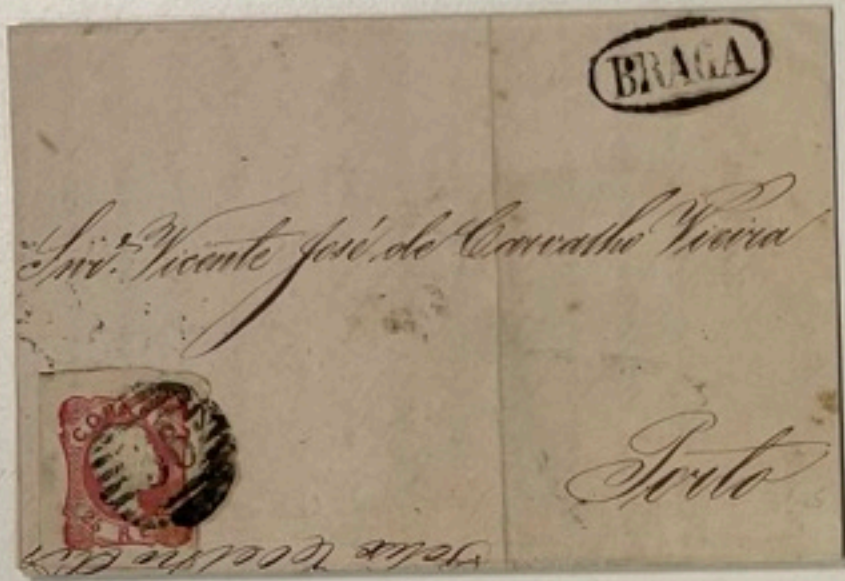 BRAGA
Snr. Vicente José de Carvalho Vieira
Porto
CORREIO
25 R